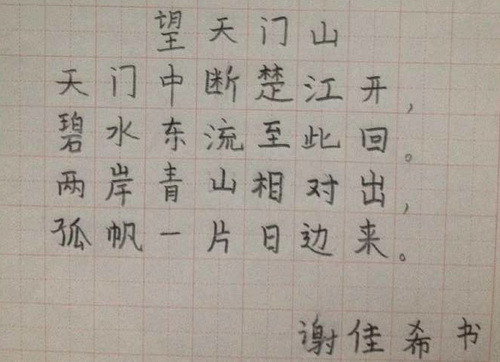 望天门山
天门中断楚江开,
碧水东流至此回。
两岸青山相对出,
孤帆一片日边来。
谢佳希书